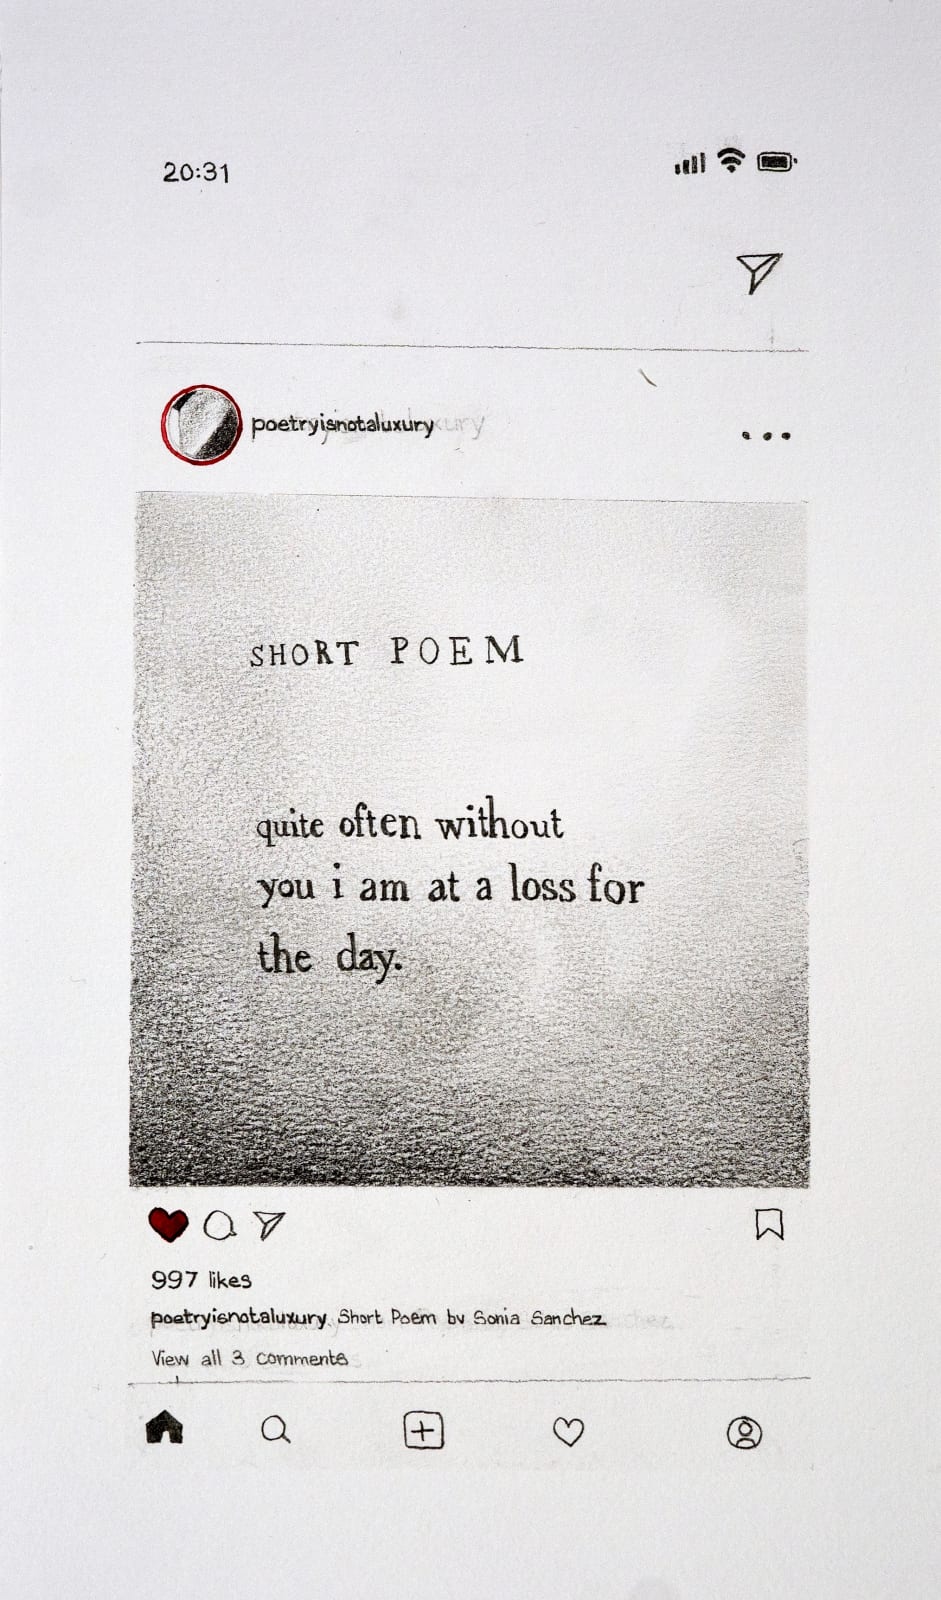 20:31
poetryisnotaluxury
SHORT POEM
quite often without
you i am at a loss for
the day.
997 likes
poetryisnotaluxury Short Poem by Sonia Sanchez
View all 3 comments